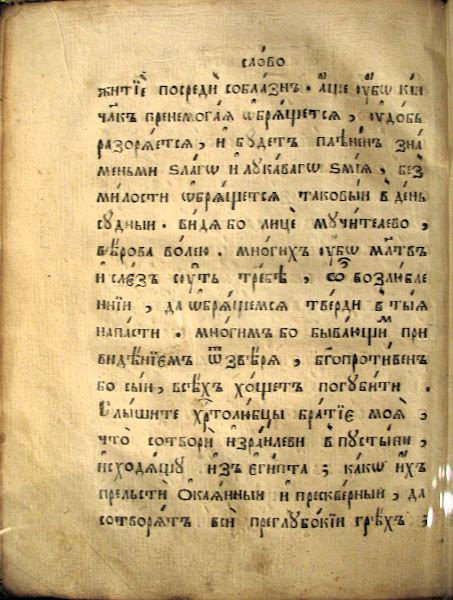 сло́во
житїѐ посредѝ собла́знъ . а҆́ще ᲂу҆̀бѡ кі́й
чл҃къ пренемога́ѧ ѡ҆брѧ́щетсѧ , ᲂу҆до́бь
разорѧ́етсѧ , и҆ бу́детъ плѣне́нъ зна́
меньми ѕла́гѡ и҆ лука́вагѡ ѕмі́ѧ , без̾
ми́лости ѡ҆брѧ́щетсѧ таковы́и в де́нь
су́дныи . ви́дѧ бо лицѐ мучи́телево ,
вѣ́рова во́лею . мно́гихъ ᲂу҆́бѡ мл҃твъ
и҆ сле́зъ сꙋ́ть тре́бѣ , ѽ возлю́бле
ннїи , да ѡ҆брѧ́щемсѧ тве́рди в ты́ѧ
напа́сти . мно́гимъ бо быва́ющимъ при
ви́дѣнїемъ ѿ ѕвѣ́рѧ , бг҃опроти́венъ
бо сы́и , всѣ́хъ хо́щетъ погуби́ти .
Слы́шите хрⷭ҇толю́бцы бра́тїе моѧ̀ ,
что̀ сотворѝ и҆зра́илеви в пусты́ни ,
и҆сходѧ́щу и҆зъ є҆гі́пта ; ка́кѡ и҆́хъ
прельстѝ ѻ҆каѧ́нныи и҆ прескве́рныи , да
сотворѧ́тъ всѝ преглубо́кїи грѣ́хъ ;